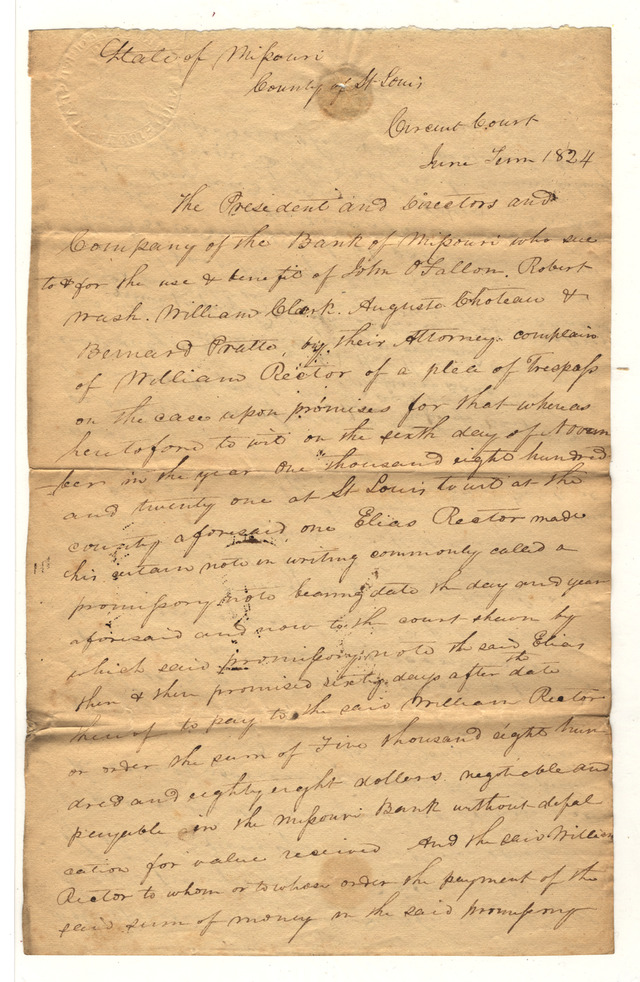 State of Missouri
County of St Louis
Circuit Court
June Term 1824
The President and Directors and
Company of the Bank of Missouri who sue
to & for the use & benefit of John O'Fallon. Robert
Wash. William Clark. Auguste Choteau &
Bernard Pratte, by their Attorney complain
of William Rector of a plea of Trespass
on the case upon promises for that whereas
heretofore to wit on the sixth day of Novem
ber in the year one thousand eight hundred
and twenty one at St Louis to wit at the
county aforesaid one Elias Rector made
his certain note in writing commonly called a
promissory note bearing date the day and year
aforesaid and now to the court shewn by
which said promissory note the said Elias
then & there promised sixty days after the date
hereof to pay to the said William Rector
or order the sum of Five thousand eight hun
dred and eighty eight dollars negotiable and
payable in the Missouri Bank without defal
cation for value received And the said William
Rector to whom or to whose order the payment of the
said sum of money in the said promissory